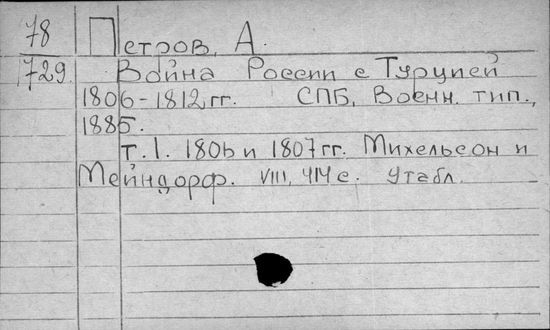 78 Петров, А.
729. Война России с Турцией
1806-1812 гг. СПБ, Военн. тип.,
1885.
т. 1. 1806 и 1807 гг. Михельсон и
Мейндорф. VIII, с. табл.